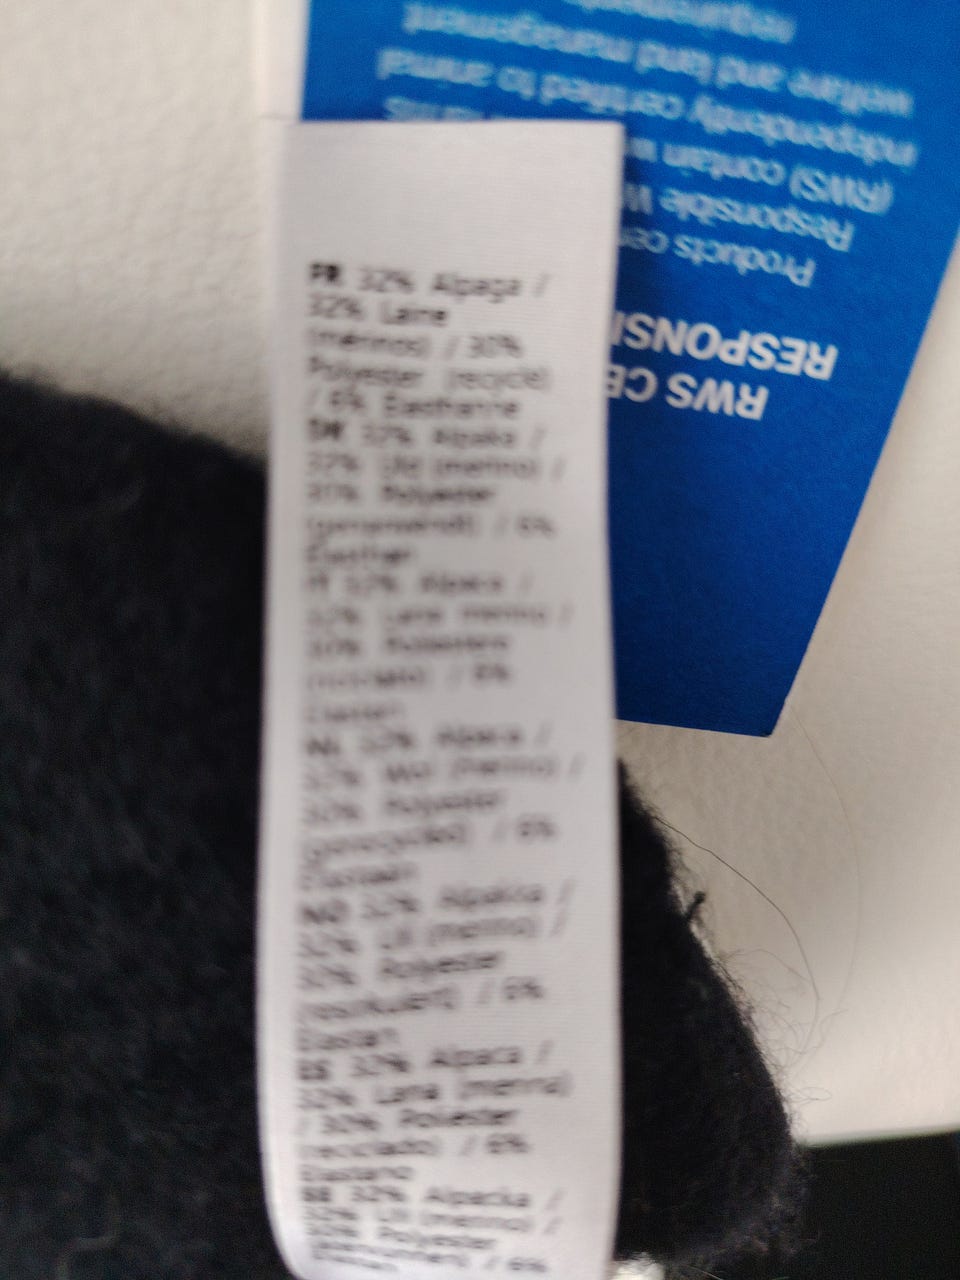 FR 32% Alpaga /
32% Laine
(mérinos) / 30%
Polyester (recyclé)
/ 6% Élasthanne
DK 32% Alpaka /
32% Uld (merino) /
30% Polyester
(genanvendt) / 6%
Elasthan
IT 32% Alpaca /
32% Lana merino /
30% Poliestere
(riciclato) / 6%
Elastan
NL 32% Alpaca /
32% Wol (merino) /
30% Polyester
(gerecycled) / 6%
Elastaan
NO 32% Alpakka /
32% Ull (merino) /
30% Polyester
(resirkulert) / 6%
Elastan
ES 32% Alpaca /
32% Lana (merina)
/ 30% Poliéster
(reciclado) / 6%
Elastano
SE 32% Alpacka /
32% Ull (merino) /
30% Polyester
/ 6%
RWS CE
RESPONSI
Products cer
Responsible W
(RWS) contain w
independently certified to animal
welfare and land management
requirements